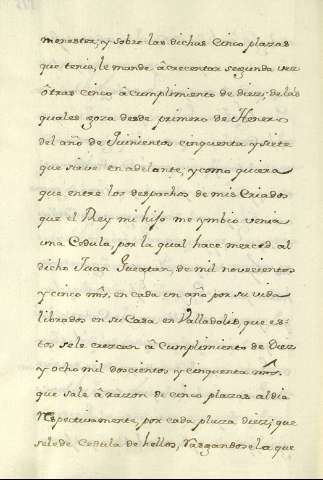 menester; y sobre las dichas Cinco plazas
que tenia, le mande âcrecentar segunda vez
ôtras cinco â cumplimiento de diez; de las
quales goza desde primero de Henero
del año de Quinientos cinquenta y siete
que sirve en adelante; y como quiera
que entre los despachos de mis Criados
que el Rey mi hijo me ymbio venia
una Cedula, por la qual hace merced al
dicho Juan de mil novecientos
y cinco mrs. en cada un año por su vida
librados en su Casa en Valladolid, que es-
tos sele crezcan â Cumplimiento de Diez
y ocho mil doscientos y cinquenta mrs.
que sale â razon de cinco plazas al dia
Respectivamente, por cada plaza diez; que
sele de Cedula de hellos, Rasgandose la que